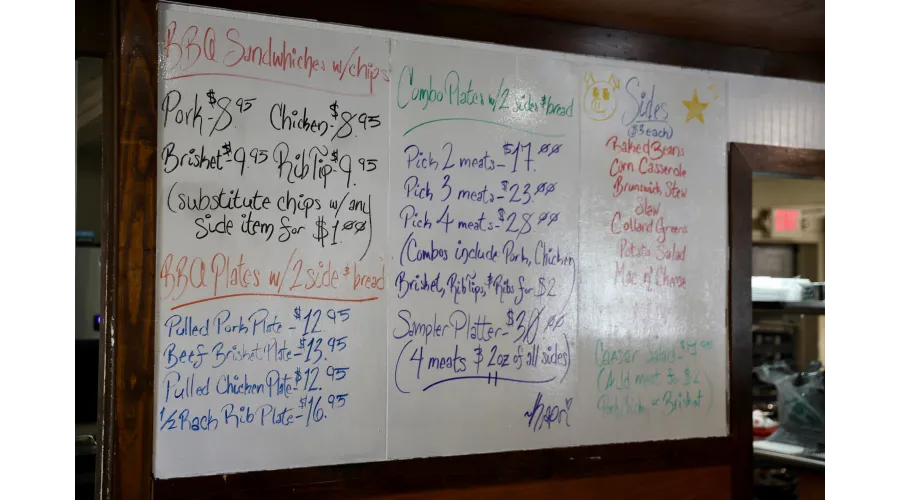 BBQ Sandwhiches w/chips
Pork-$8.95 Chicken-$8.95
Brisket-$9.95 RibTip-$9.95
(substitute chips w/any
side item for $1.00)
BBQ Plates w/2 side & bread
Pulled Pork Plate-$12.95
Beef Brisket Plate-$13.95
Pulled Chicken Plate-$12.95
1/2 Rack Rib Plate-$16.95
Combo Plates w/2 sides & bread
Pick 2 meats-$17.00
Pick 3 meats-$23.00
Pick 4 meats-$28.00
(Combos include Pork, Chicken
Brisket, RibTips, & Ribs for $2
Sampler Platter-$30.00
(4 meats & 2oz of all sides)
Sides
($3 each)
Baked Beans
Corn Casserole
Brunswick Stew
Slaw
Collard Greens
Potato Salad
Mac n' Cheese
Caesar Salad
(Add meat for
or Brisket)